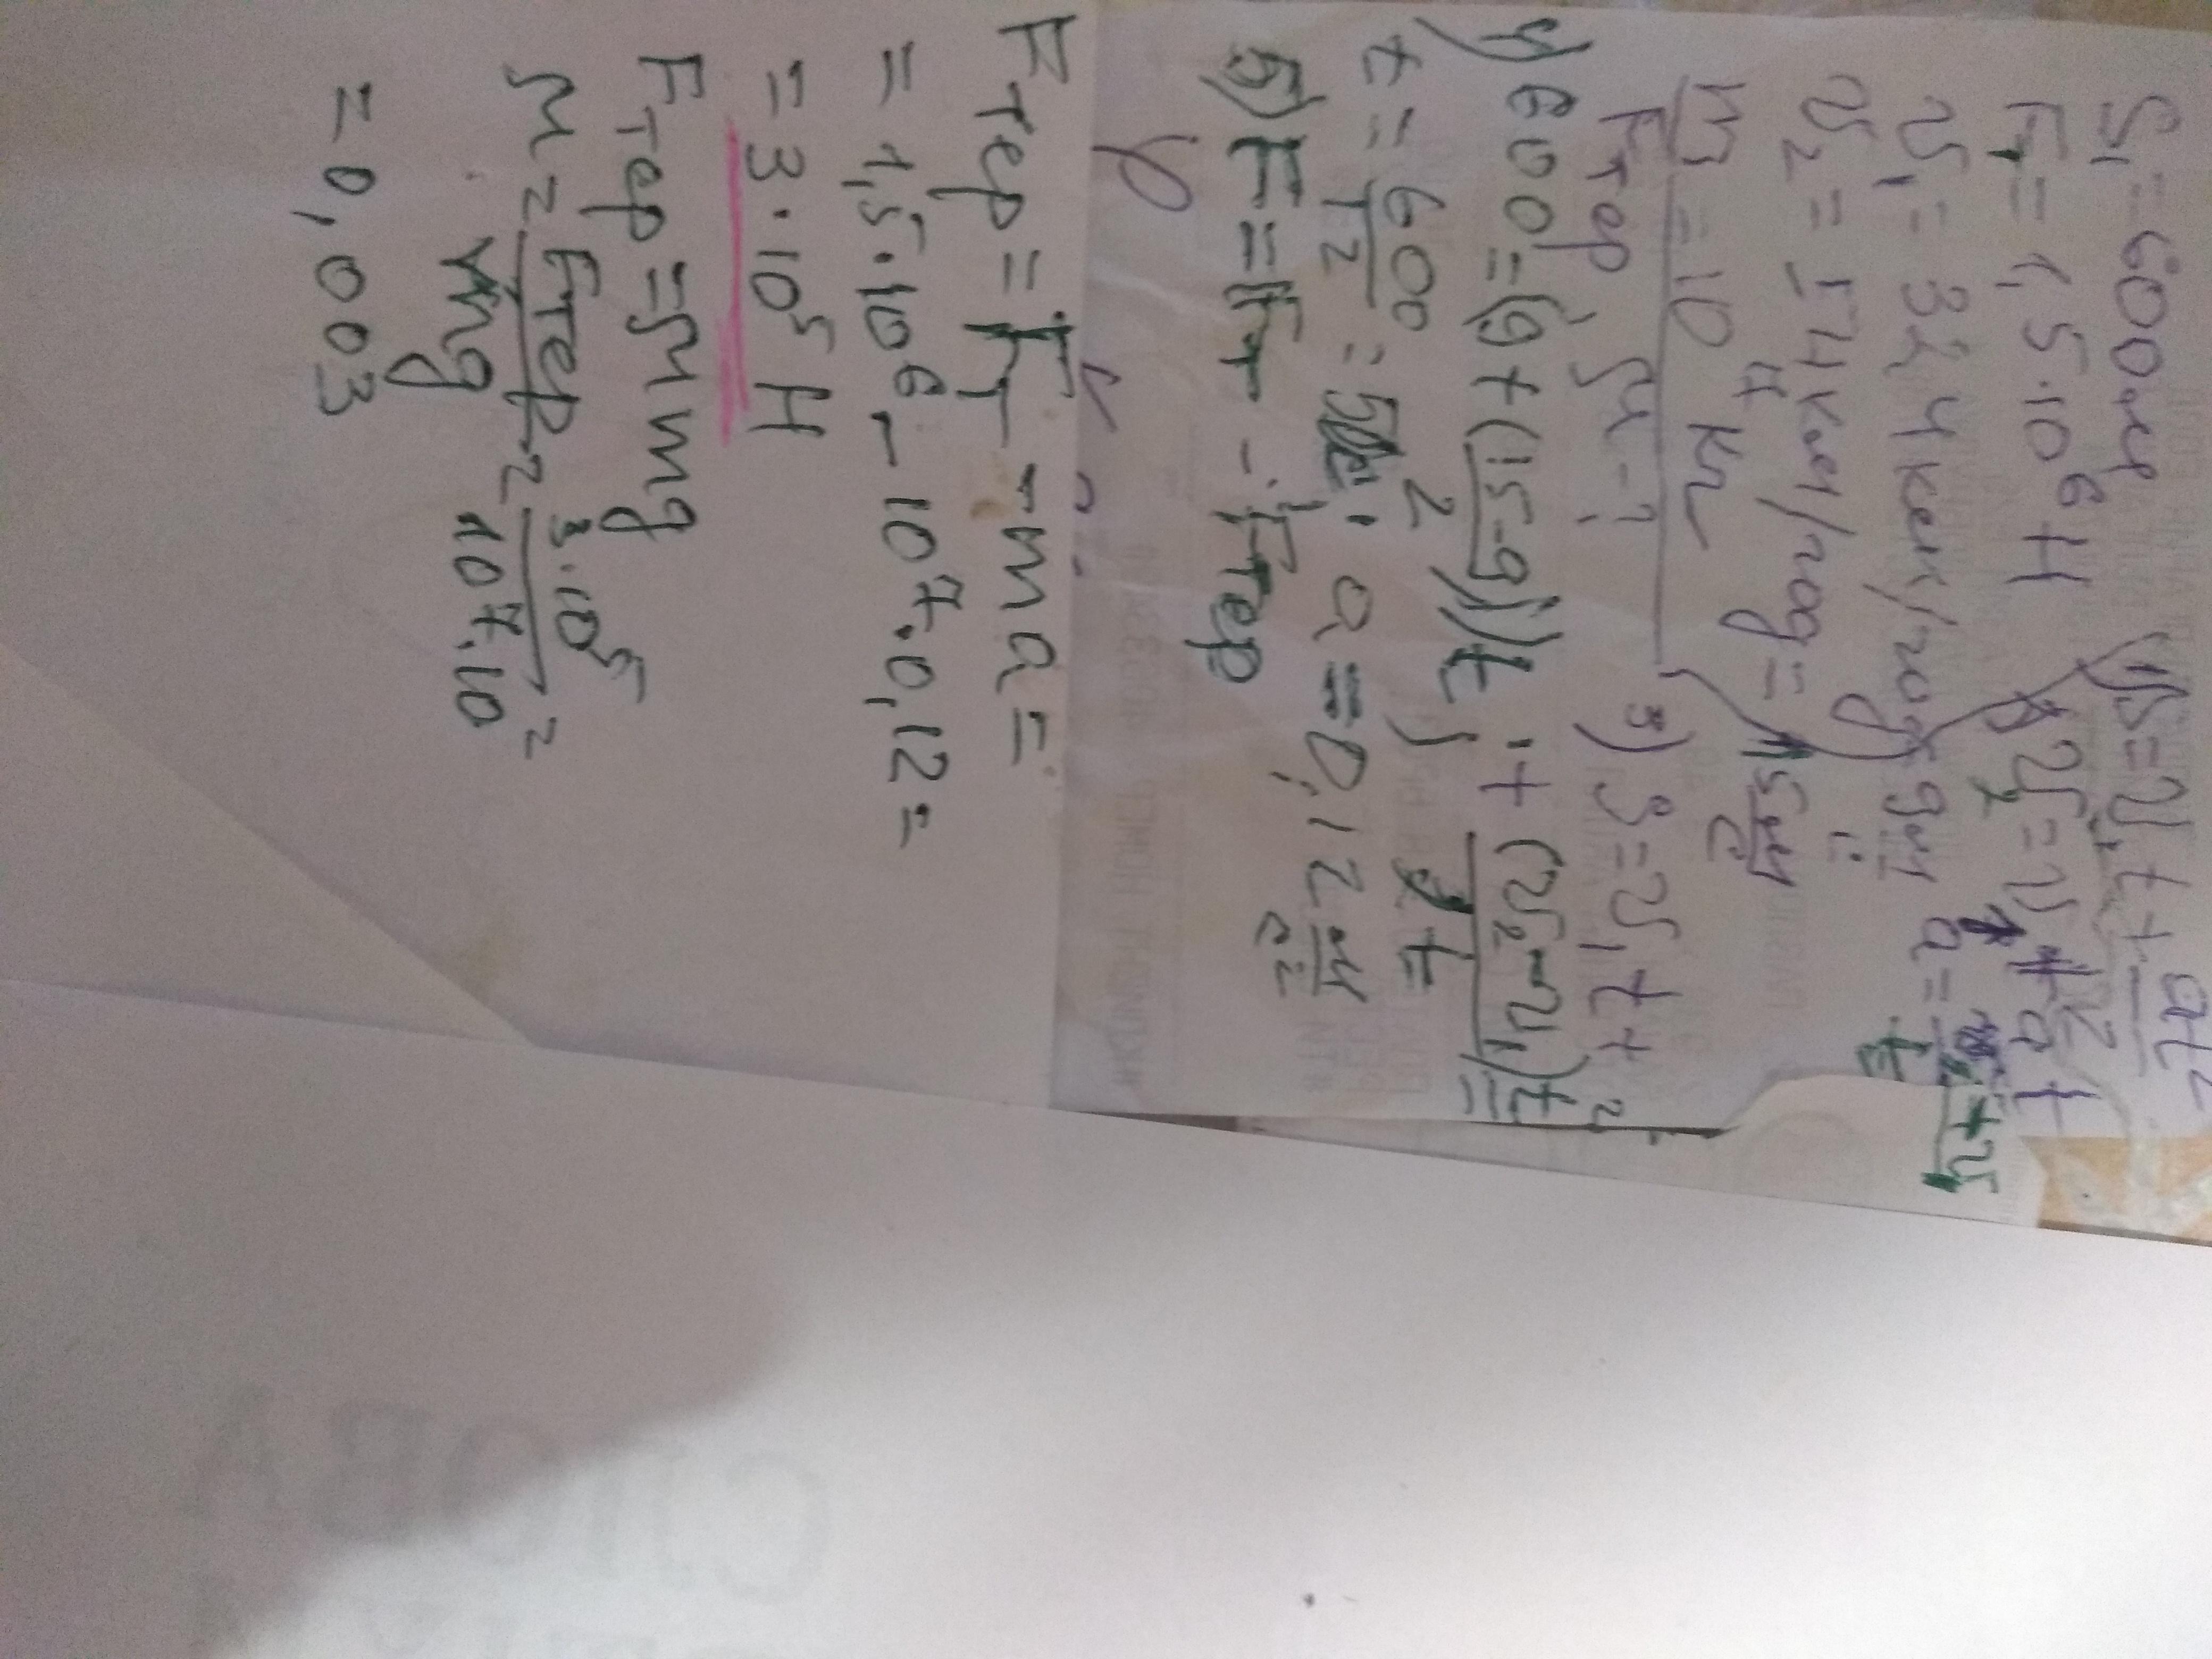 S₁=600м
Fт=1,5·10⁶ Н
v₁=32,4 км/год=9 м/с
v₂=54 км/год=15 м/с
m=10⁷ кг
Fтер, μ-?
1) S=v₁t+at²/2
2) v₂=v₁+at
a=
3) S=v₁t+
+(v₂-v₁)t²/2t=
4) 600=(9+(15-9)/2)t;
t=600/12=50с; a=0,12 м/с²
5) F=Fт-Fтер
Fтер=Fт-ma=
=1,5·10⁶-10⁷·0,12=
=3·10⁵ Н
Fтер=μmg
μ=Fтер/mg=3·10⁵/10⁷·10=
=0,003